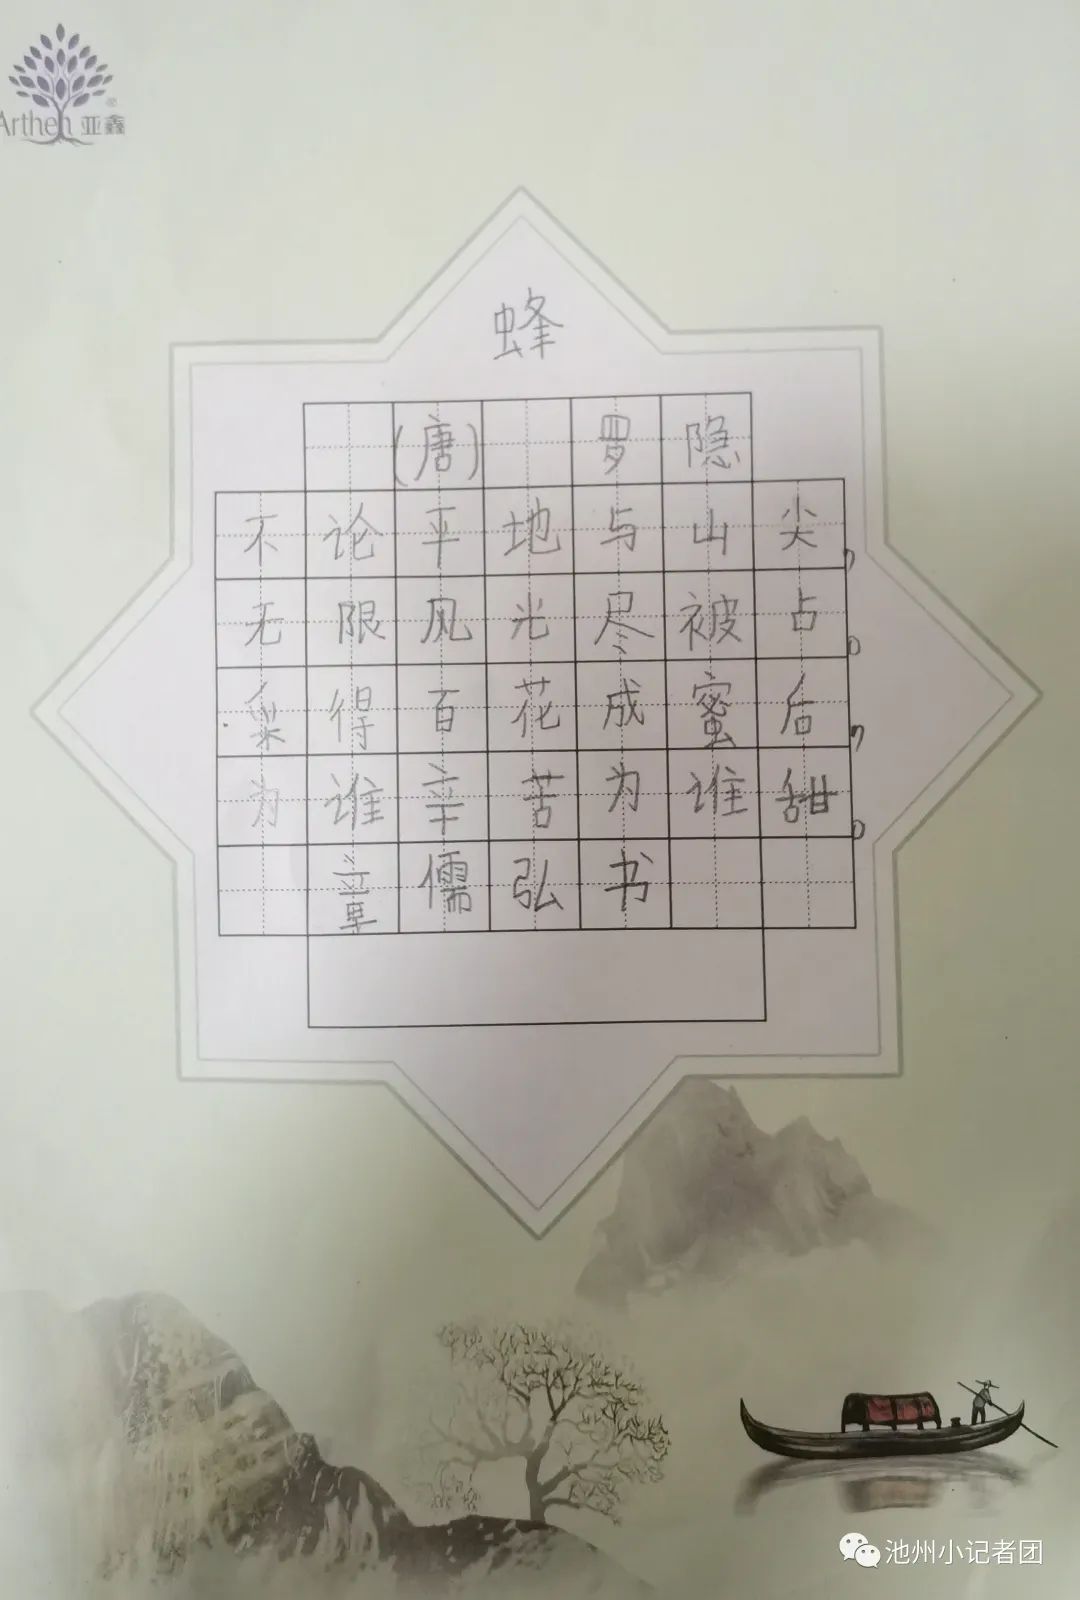 Arthen 亚鑫
蜂
(唐) 罗隐
不论平地与山尖,
无限风光尽被占。
得百花成蜜后,
为谁辛苦为谁甜。
章儒弘书
池州小记者团